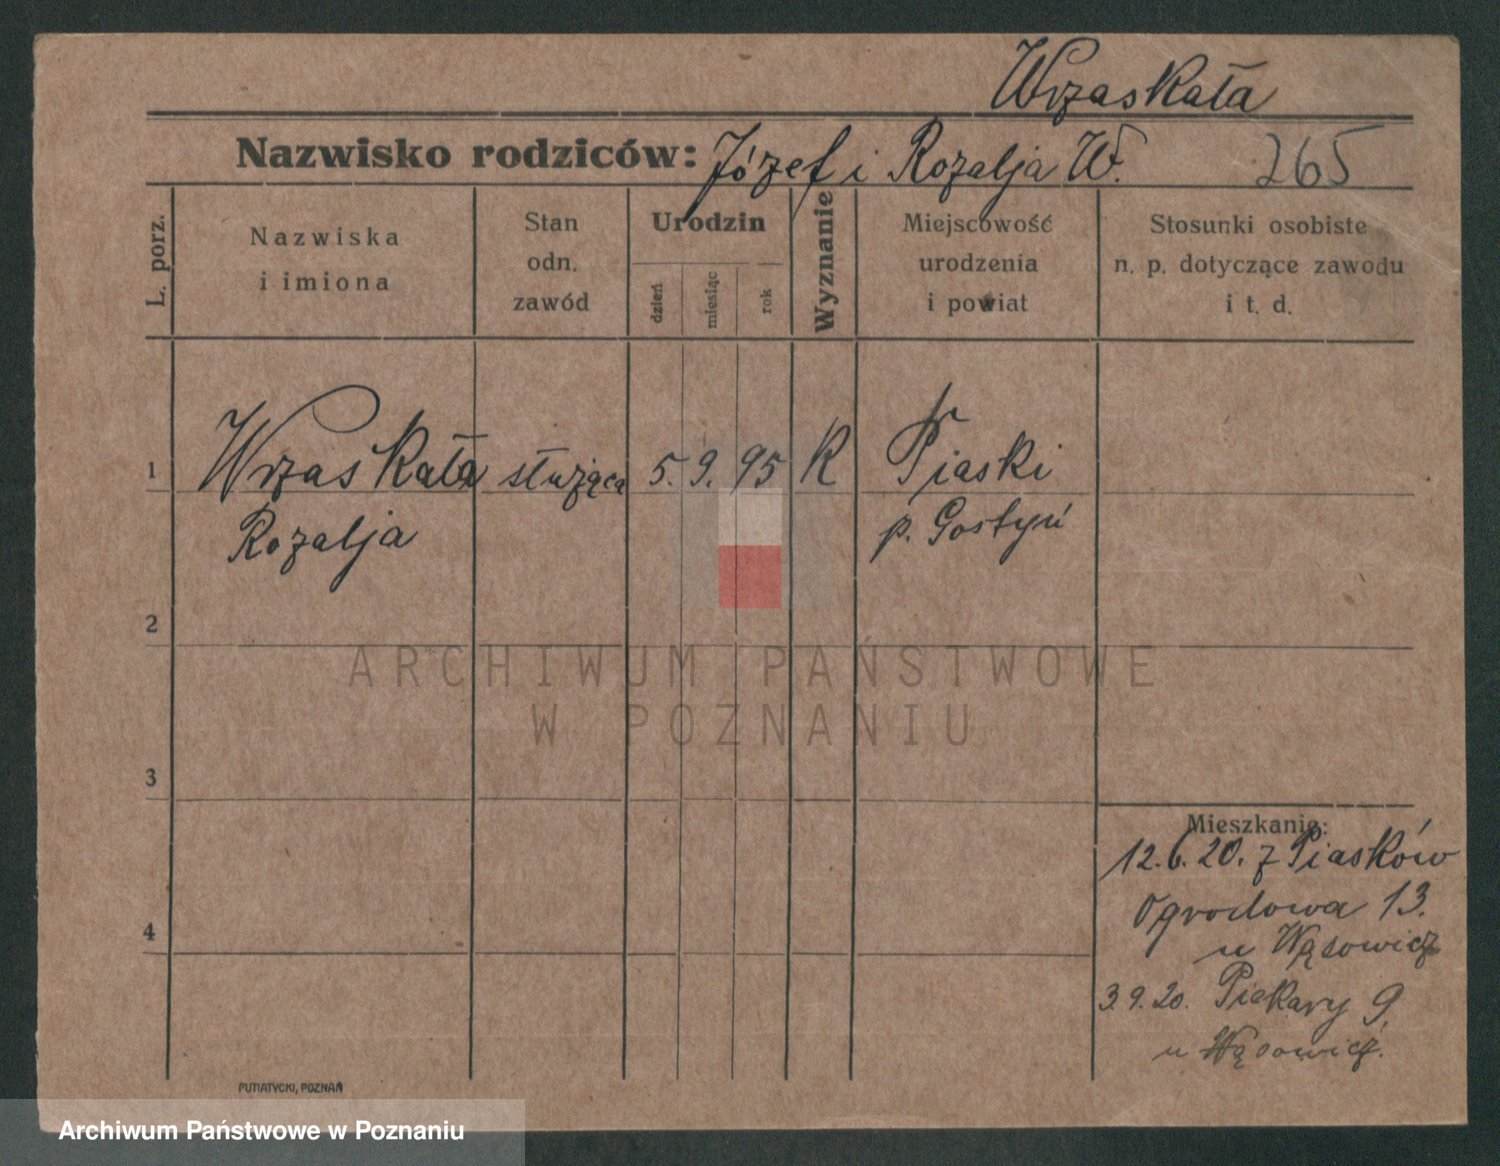 Wrzaskała
Nazwisko rodziców: Józef i Rozalja W. 265
L. porz.
Nazwiska
i imiona
Stan
odn.
zawód
Urodzin
dzień
miesiąc
rok
Wyznanie
Miejscowość
urodzenia
i powiat
Stosunki osobiste
n. p. dotyczące zawodu
i t. d.
1 Wrzaskała służąca 5. 9. 95 K Piaski
Rozalja p. Gostyń
2
ARCHIWUM PAŃSTWOWE
W POZNANIU
3
Mieszkanie:
12.6.20. z Piasków
Ogrodowa 13.
u Wąsowicz
4
3.9.20. Piekary 9
u Wąsowicz.
PUTIATYCKI, POZNAŃ
Archiwum Państwowe w Poznaniu